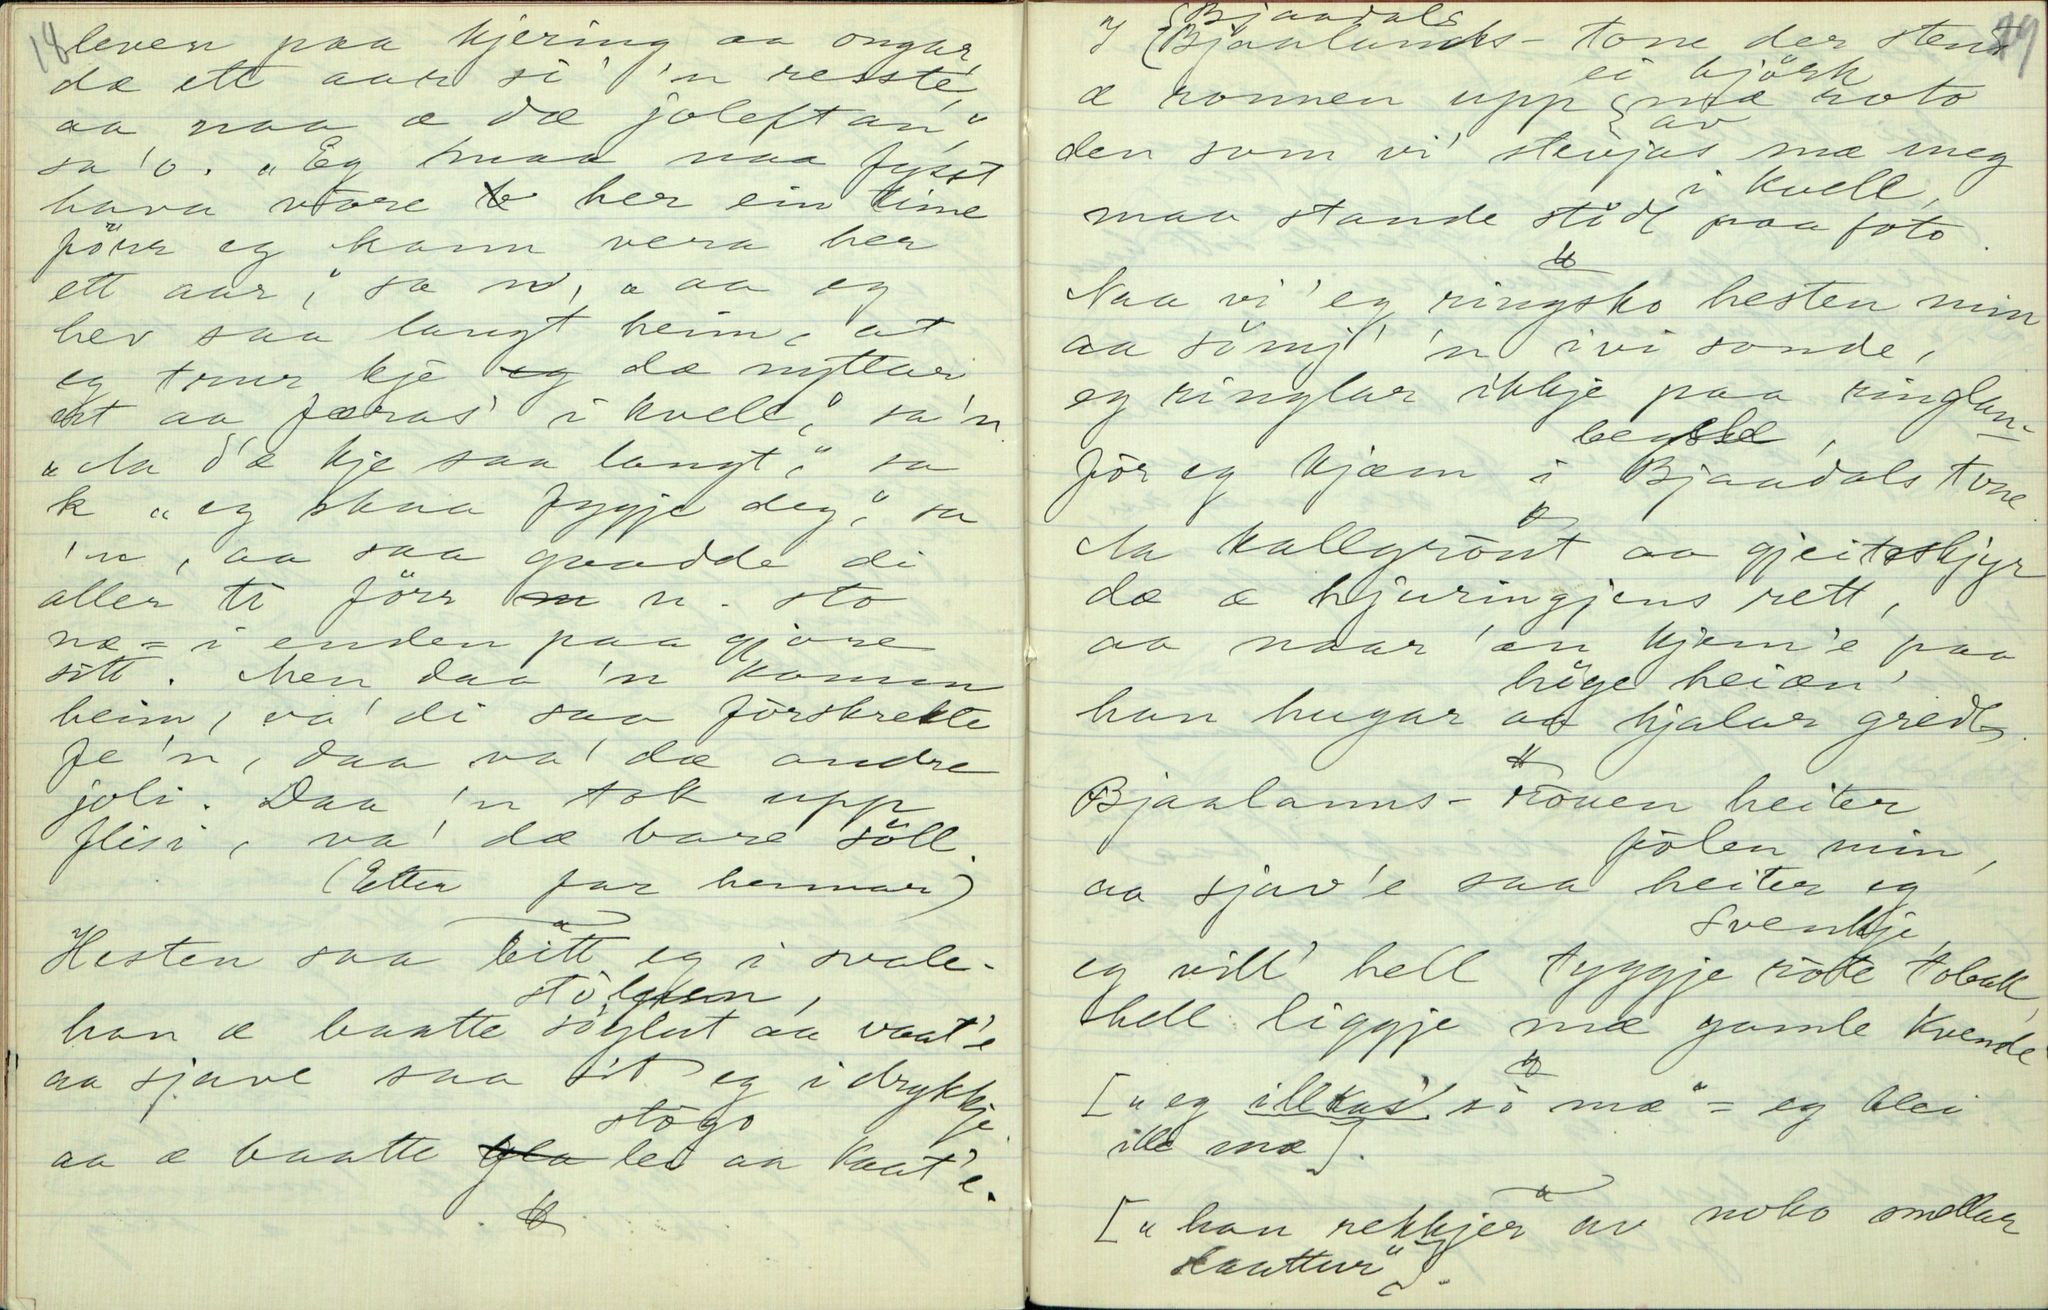 18
leven paa kjering aa ongar,
dæ ett aar si' 'n resste,
aa naa æ dæ joleftan",
sa 'o. "Eg maa naa fysst
hava vore her ein time
förr eg kann vera her
ett aar", sa n, "aa eg
hev saa langt heim, at
eg trur kje dæ nyttar
at aa færas' i kvell", sa'n.
"Aa d'æ kje saa langt", sa
k "eg skaa fygje deg", sa
'n, aa saa gvadde di
aller ti förr n. sto
næ = i enden paa gjore
sitt. Men daa 'n komm
heim, va' di saa förskrekte
fe'n, daa va' dæ andre
joli. Daa 'n tok upp
flisi, va' dæ bare söll.
(Etter far hennar)
Hesten saa bitt eg i svale-
stölpen,
han æ baatte söglut aa vaat'e
aa sjave saa sit eg i drykkje
stogo
aa æ baatte lei aa kaat'e.
19
I {Bjaadals
Bjaalands- tone der stend
ei björk
æ ronnen upp {mæ roto
av
den som vi' stevjas mæ meg
i kvell,
maa stande stödt paa foto.
Naa vi' eg ringsko hesten min
aa sömj' 'n ivi sonde,
eg ringlar ikkje paa ringlan-
beysle,
för eg kjæm i Bjaadals tone.
Aa kallgrönt aa gjeiteskjyr
dæ æ hjuringjens rett,
aa naar 'an kjem'e paa
höge heiæn',
han hugar aa hjalar gredt.
Bjaalanns- rouen heiter
fölen min,
aa sjav'e saa heiter eg
Svenkje,
eg vill' hell tyggje rote tobakk,
hell liggje mæ gamle kvende
["eg illkas' so mæ" = eg blei
ille mæ].
["han rekkjer av noko smellar
slaattur"].